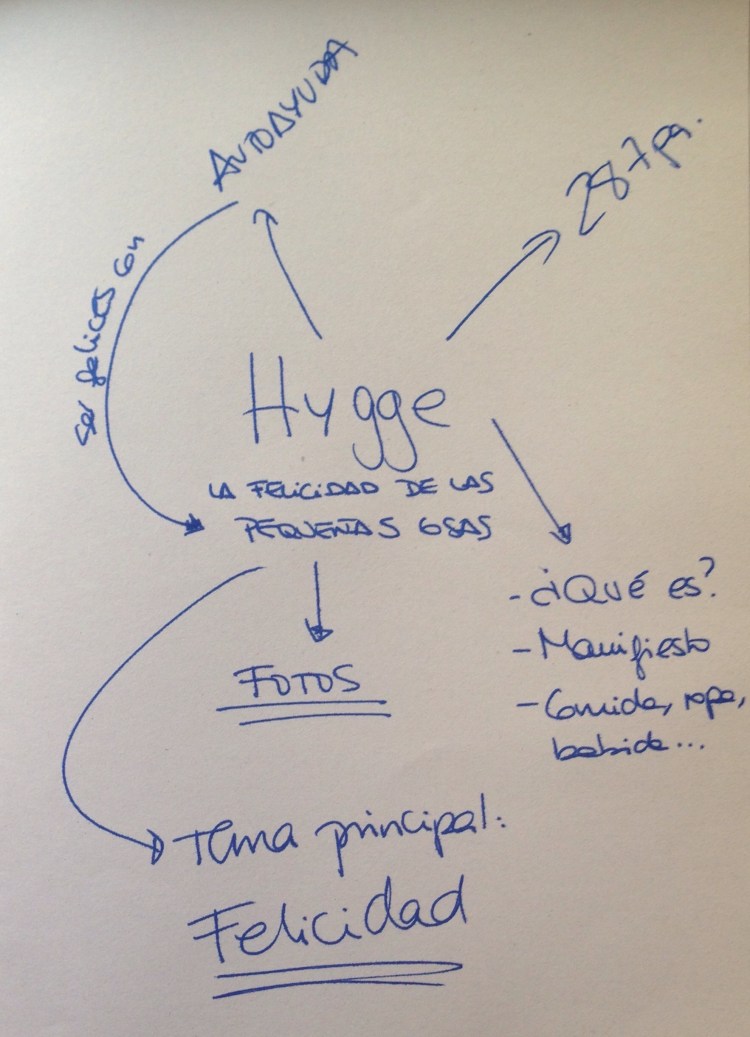 AUTOAYUDA
287 pg.
Ser felices con
Hygge
LA FELICIDAD DE LAS
PEQUEÑAS COSAS
- ¿Qué es?
- Manifiesto
- Comida, ropa,
bebida...
FOTOS
Tema principal:
Felicidad